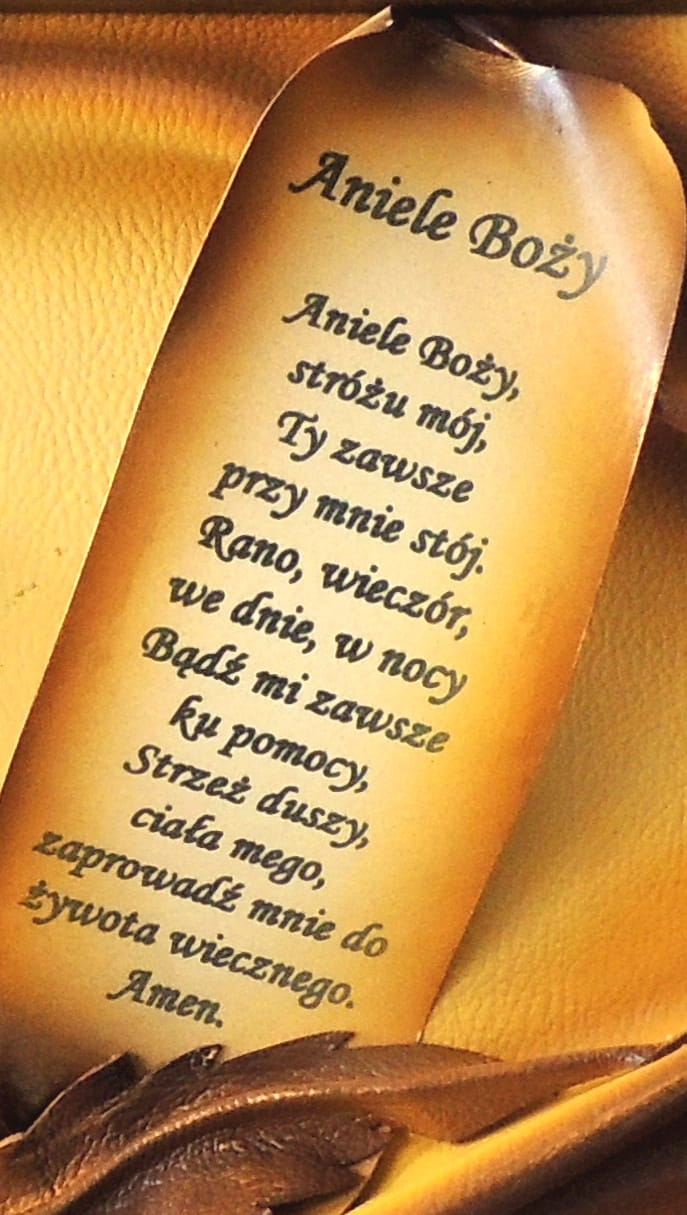 Aniele Boży
Aniele Boży,
stróżu mój,
Ty zawsze
przy mnie stój.
Rano, wieczór,
we dnie, w nocy
Bądź mi zawsze
ku pomocy,
Strzeż duszy,
ciała mego,
zaprowadź mnie do
żywota wiecznego.
Amen.